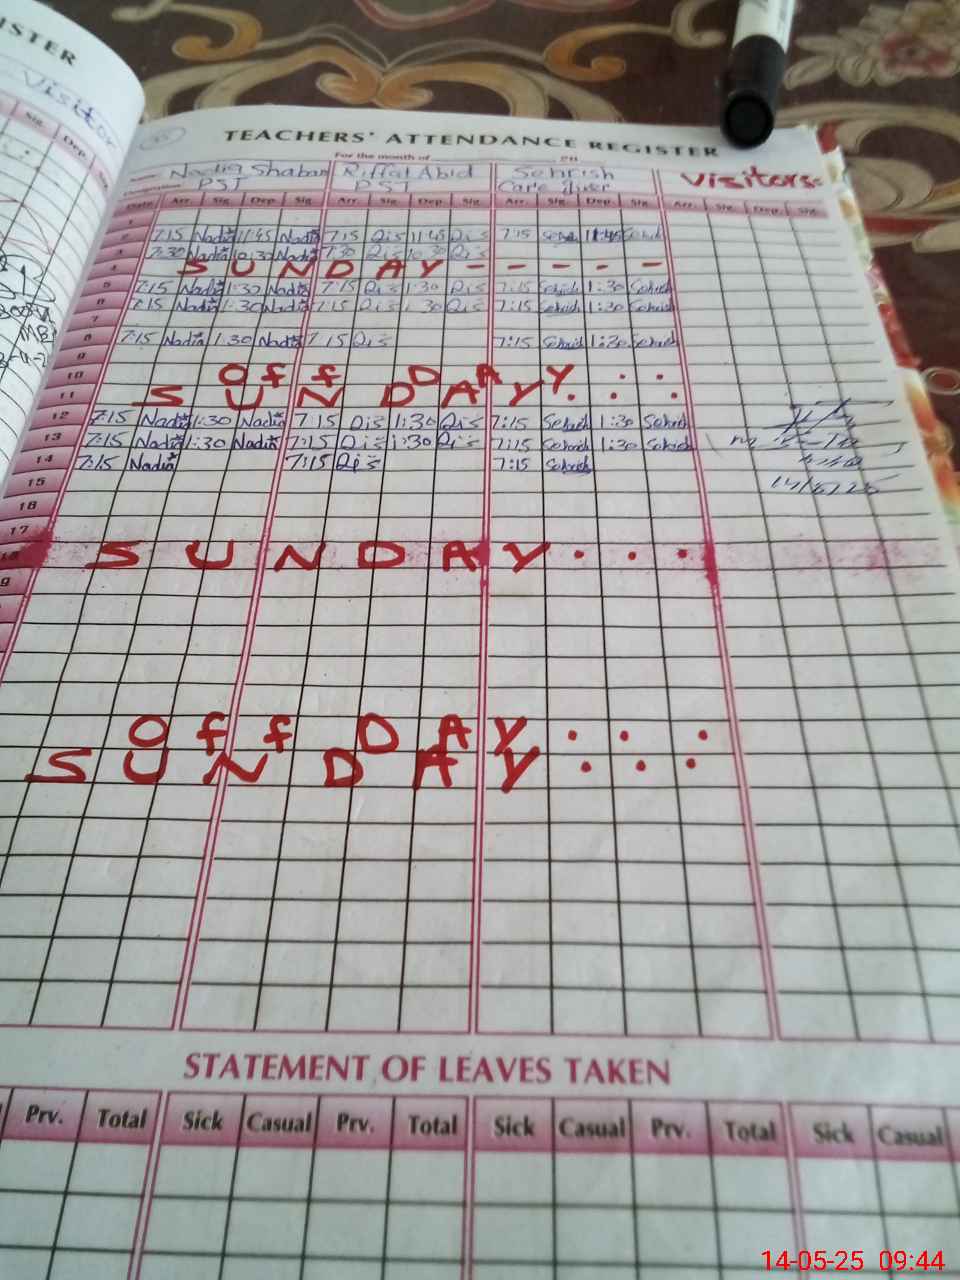 ISTER
Visitor
Sig. Dep.
TEACHERS' ATTENDANCE REGISTER
For the month of
Nadia Shaban Riffat Abid Sehrish Visitors:
PST PST Care Giver
Date Arr. Sig. Dep. Sig. Arr. Sig. Dep. Sig. Arr. Sig. Dep. Sig. Arr. Sig. Dep. Sig.
1
2 7:15 Nadia 11:45 Nadia 7:15 11:45 7:15 11:45
3 7:30 Nadia 10:30 Nadia 7:30 10:30
4 SUNDAY - - - - -
5 7:15 Nadia 1:30 Nadia 7:15 1:30 7:15 Sehrish 1:30 Sehrish
6 7:15 Nadia 1:30 Nadia 7:15 1:30 7:15 Sehrish 1:30 Sehrish
7
8 7:15 Nadia 1:30 Nadia 7:15 7:15 Sehrish 1:30 Sehrish
9
10 OFF DAY . .
11 SUNDAY . . .
12 7:15 Nadia 1:30 Nadia 7:15 1:30 7:15 Sehrish 1:30 Sehrish
13 7:15 Nadia 1:30 Nadia 7:15 1:30 7:15 Sehrish 1:30 Sehrish
14 7:15 Nadia 7:15 7:15 Sehrish
15 14/5/25
16
17
18 SUNDAY . . .
OFF DAY . . .
SUNDAY . . .
STATEMENT OF LEAVES TAKEN
Prv. Total Sick Casual Prv. Total Sick Casual Prv. Total Sick Casual
14-05-25 09:44